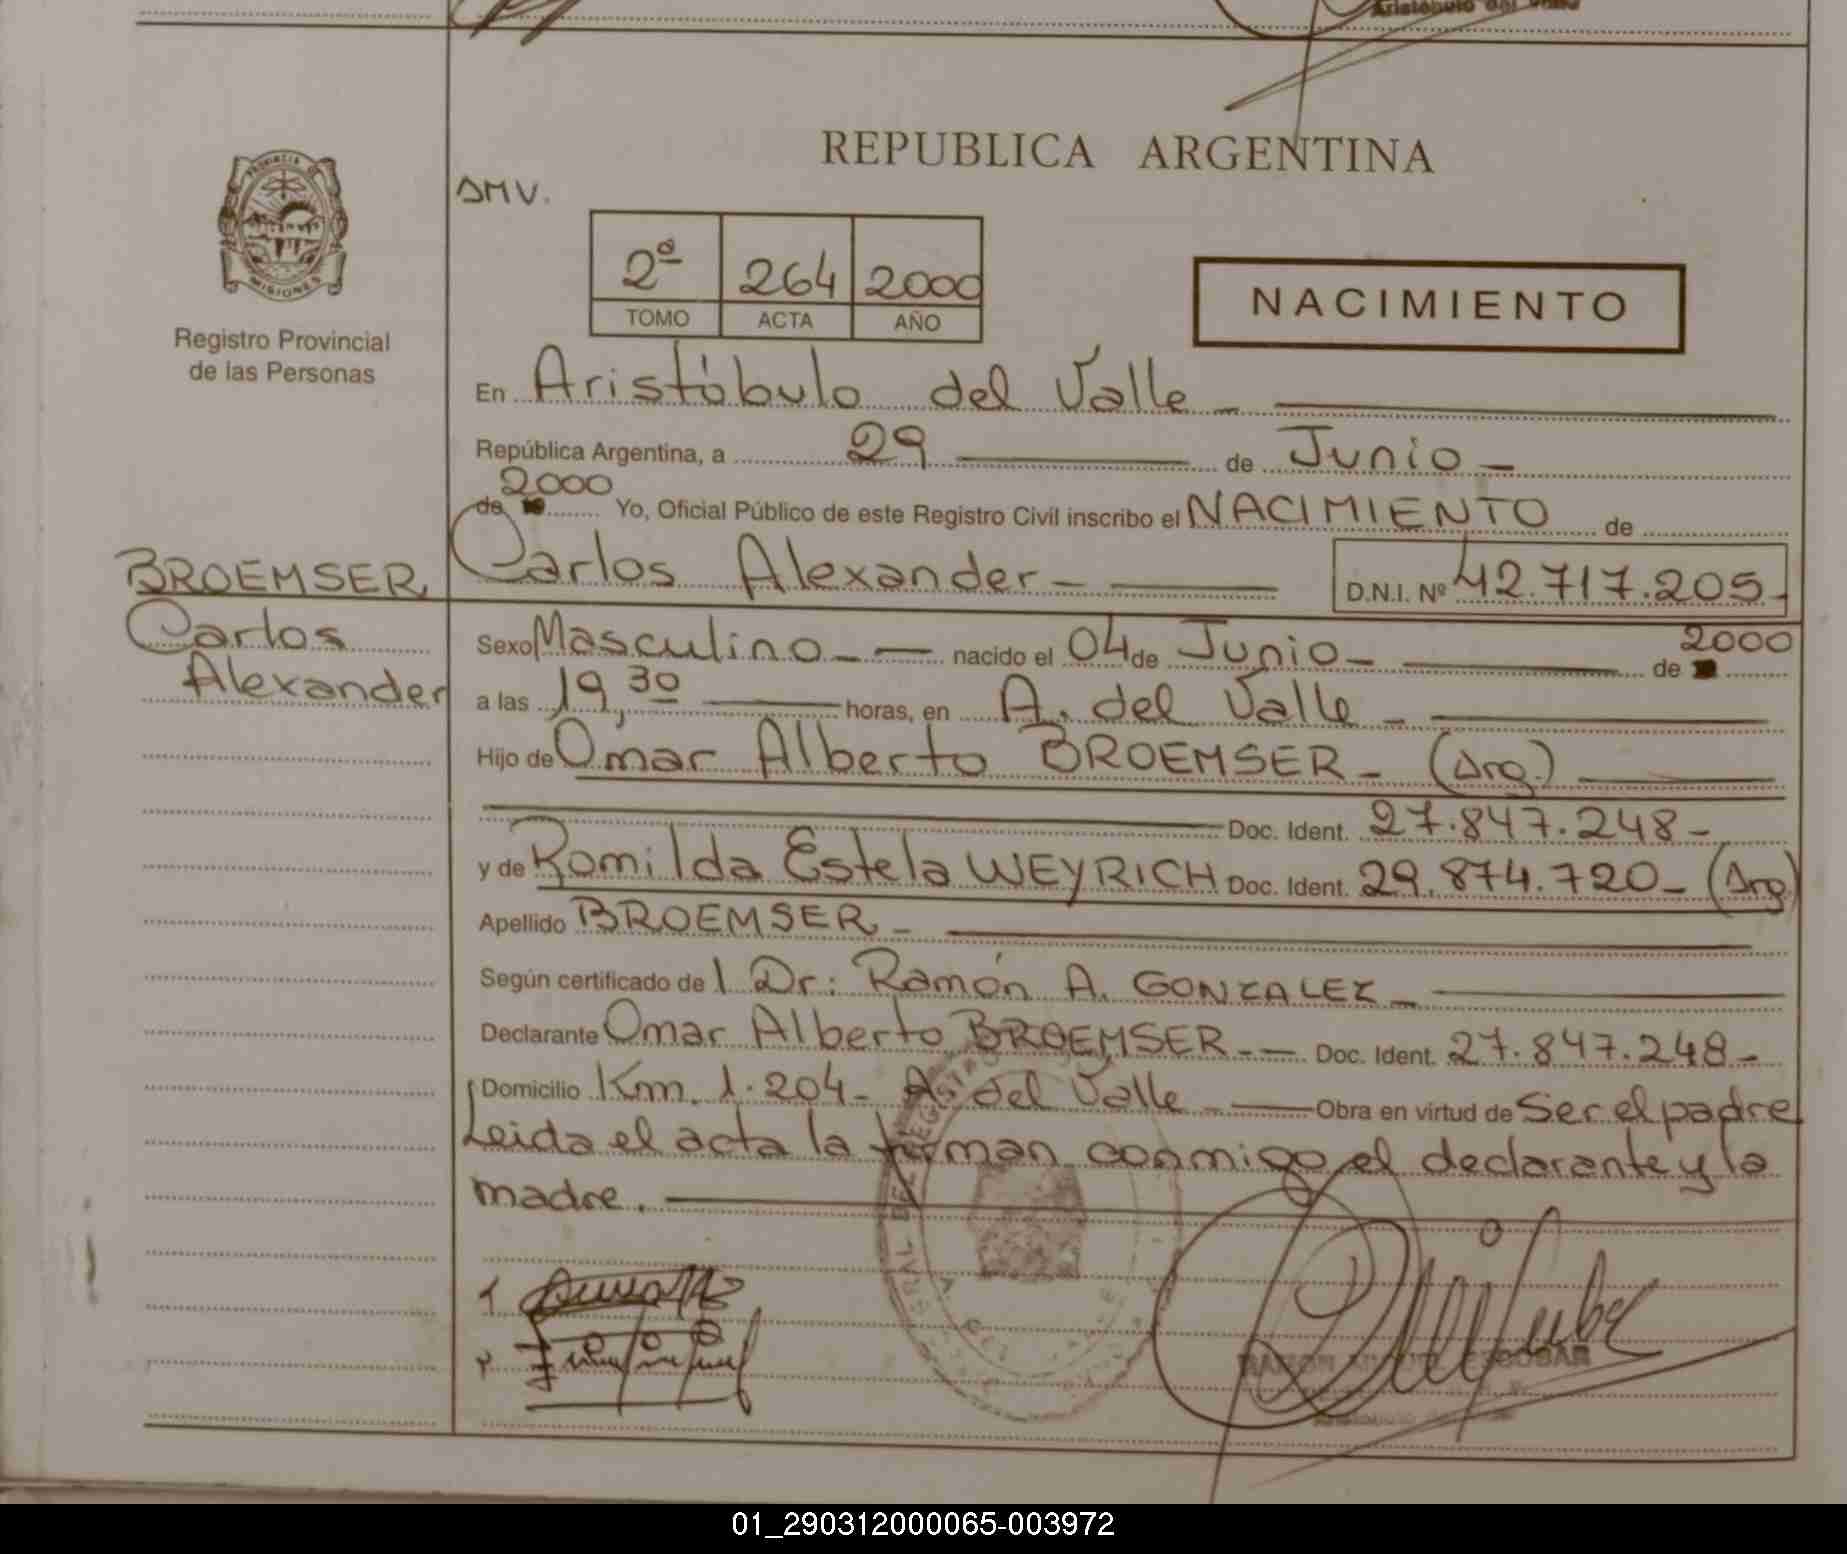 Aristóbulo del Valle
REPUBLICA ARGENTINA
PROVINCIA
MISIONES
Registro Provincial
de las Personas
SMV.
2ª 264 2000
TOMO ACTA AÑO
NACIMIENTO
En Aristóbulo del Valle
República Argentina, a 29 de Junio
2000
de Yo, Oficial Público de este Registro Civil inscribo el NACIMIENTO de
BROEMSER, Carlos Alexander D.N.I. Nº 42.717.205
Carlos
Alexander
Sexo Masculino nacido el 04 de Junio de 2000
a las 19,30 horas, en A. del Valle
Hijo de Omar Alberto BROEMSER (Arg.)
Doc. Ident. 27.847.248
y de Romilda Estela WEYRICH Doc. Ident. 29.874.720 (Arg)
Apellido BROEMSER
Según certificado de l Dr: Ramón A. GONZALEZ
Declarante Omar Alberto BROEMSER Doc. Ident. 27.847.248
Domicilio Km. 1.204 A. del Valle Obra en virtud de Ser el padre
Leida el acta la firman conmigo el declarante y la
madre.
ESCOBAR
01_290312000065-003972